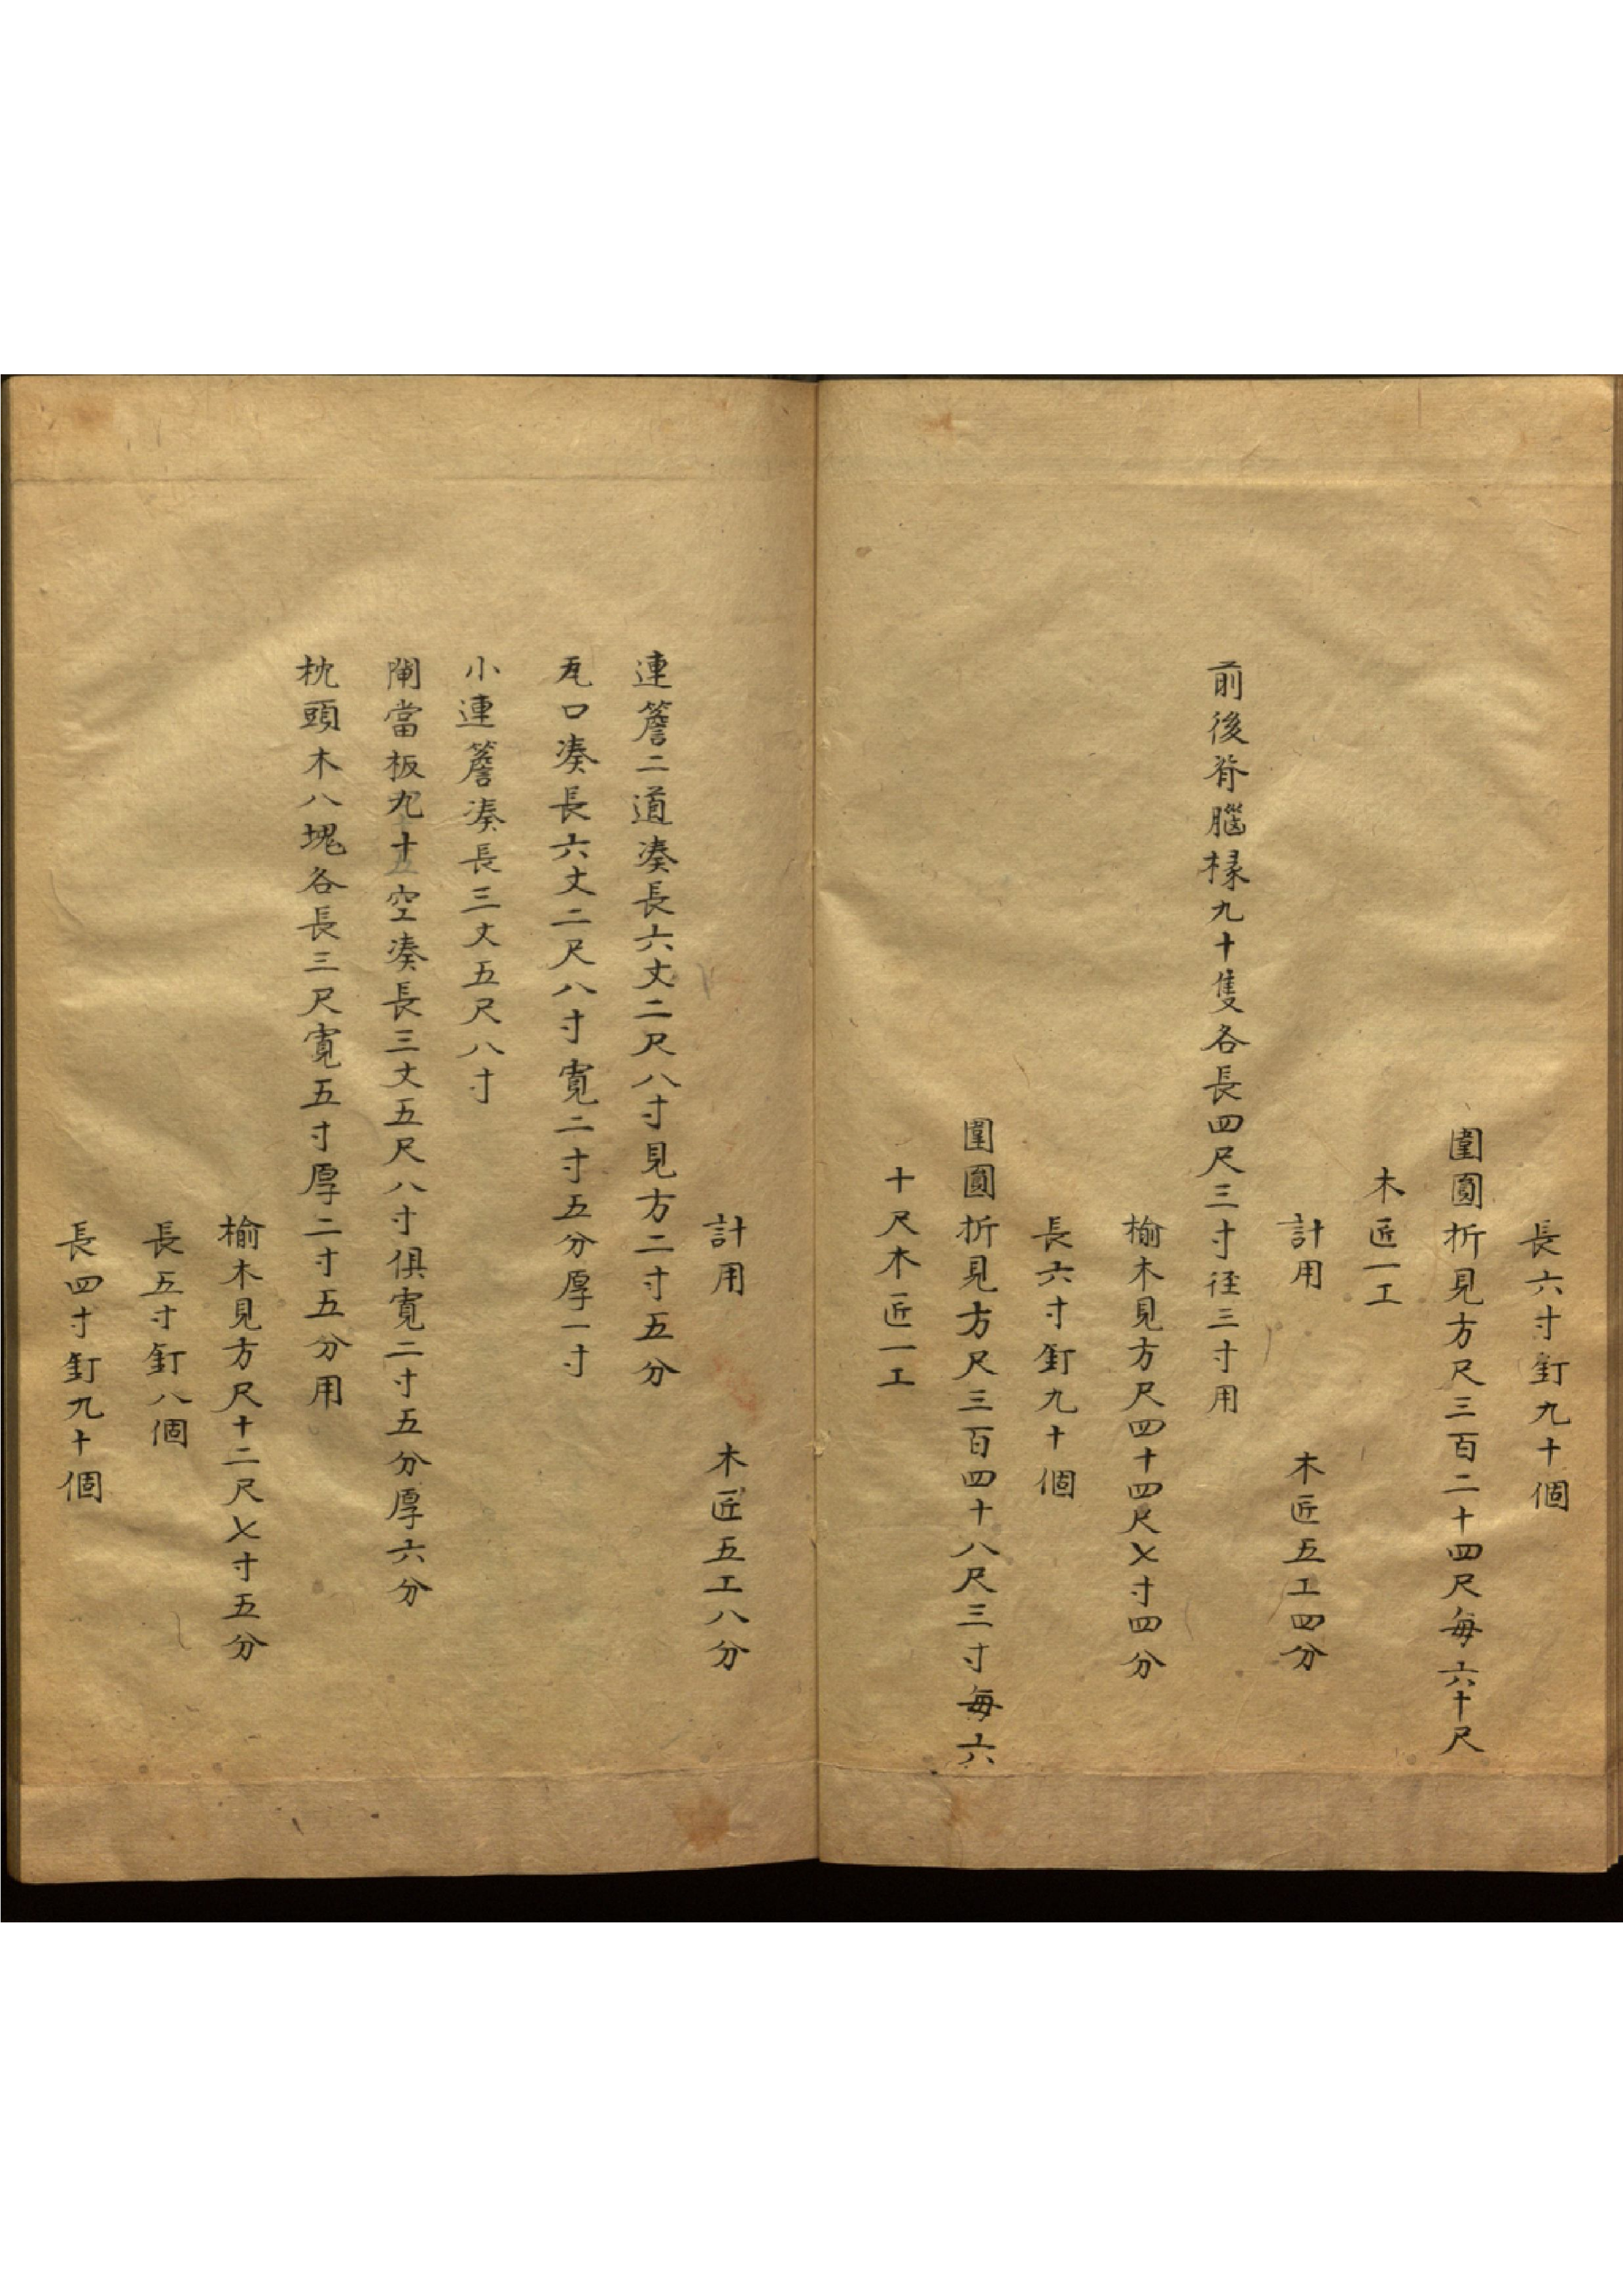 長六寸釘九十個
圍圓折見方尺三百二十四尺每六十尺
木匠一工
計用　木匠五工四分
前後脊腦椽九十隻各長四尺三寸徑三寸用
榆木見方尺四十四尺七寸四分
長六寸釘九十個
圍圓折見方尺三百四十八尺三寸每六
十尺木匠一工
計用　木匠五工八分
連簷二道湊長六丈二尺八寸見方二寸五分
瓦口湊長六丈二尺八寸寬二寸五分厚一寸
小連簷湊長三丈五尺八寸
閘當板九十空湊長三丈五尺八寸俱寬二寸五分厚六分
枕頭木八塊各長三尺寬五寸厚二寸五分用
榆木見方尺十二尺七寸五分
長五寸釘八個
長四寸釘九十個